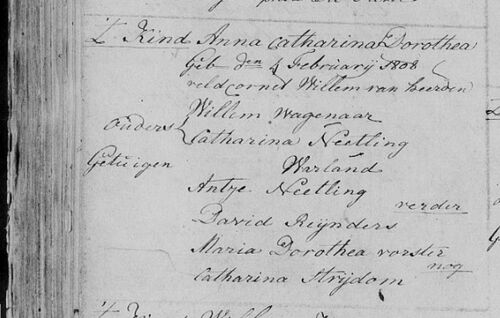 't Kind Anna Catharina Dorothea
Geb den 4 February 1808
veldcornet Willem van heerden
Willem Wagenaar
ouders
Catharina Neetling
Getuigen
Warland
Antze Neetling
verder
David Reynders
Maria Dorothea vorster
nog
Catharina Strijdom